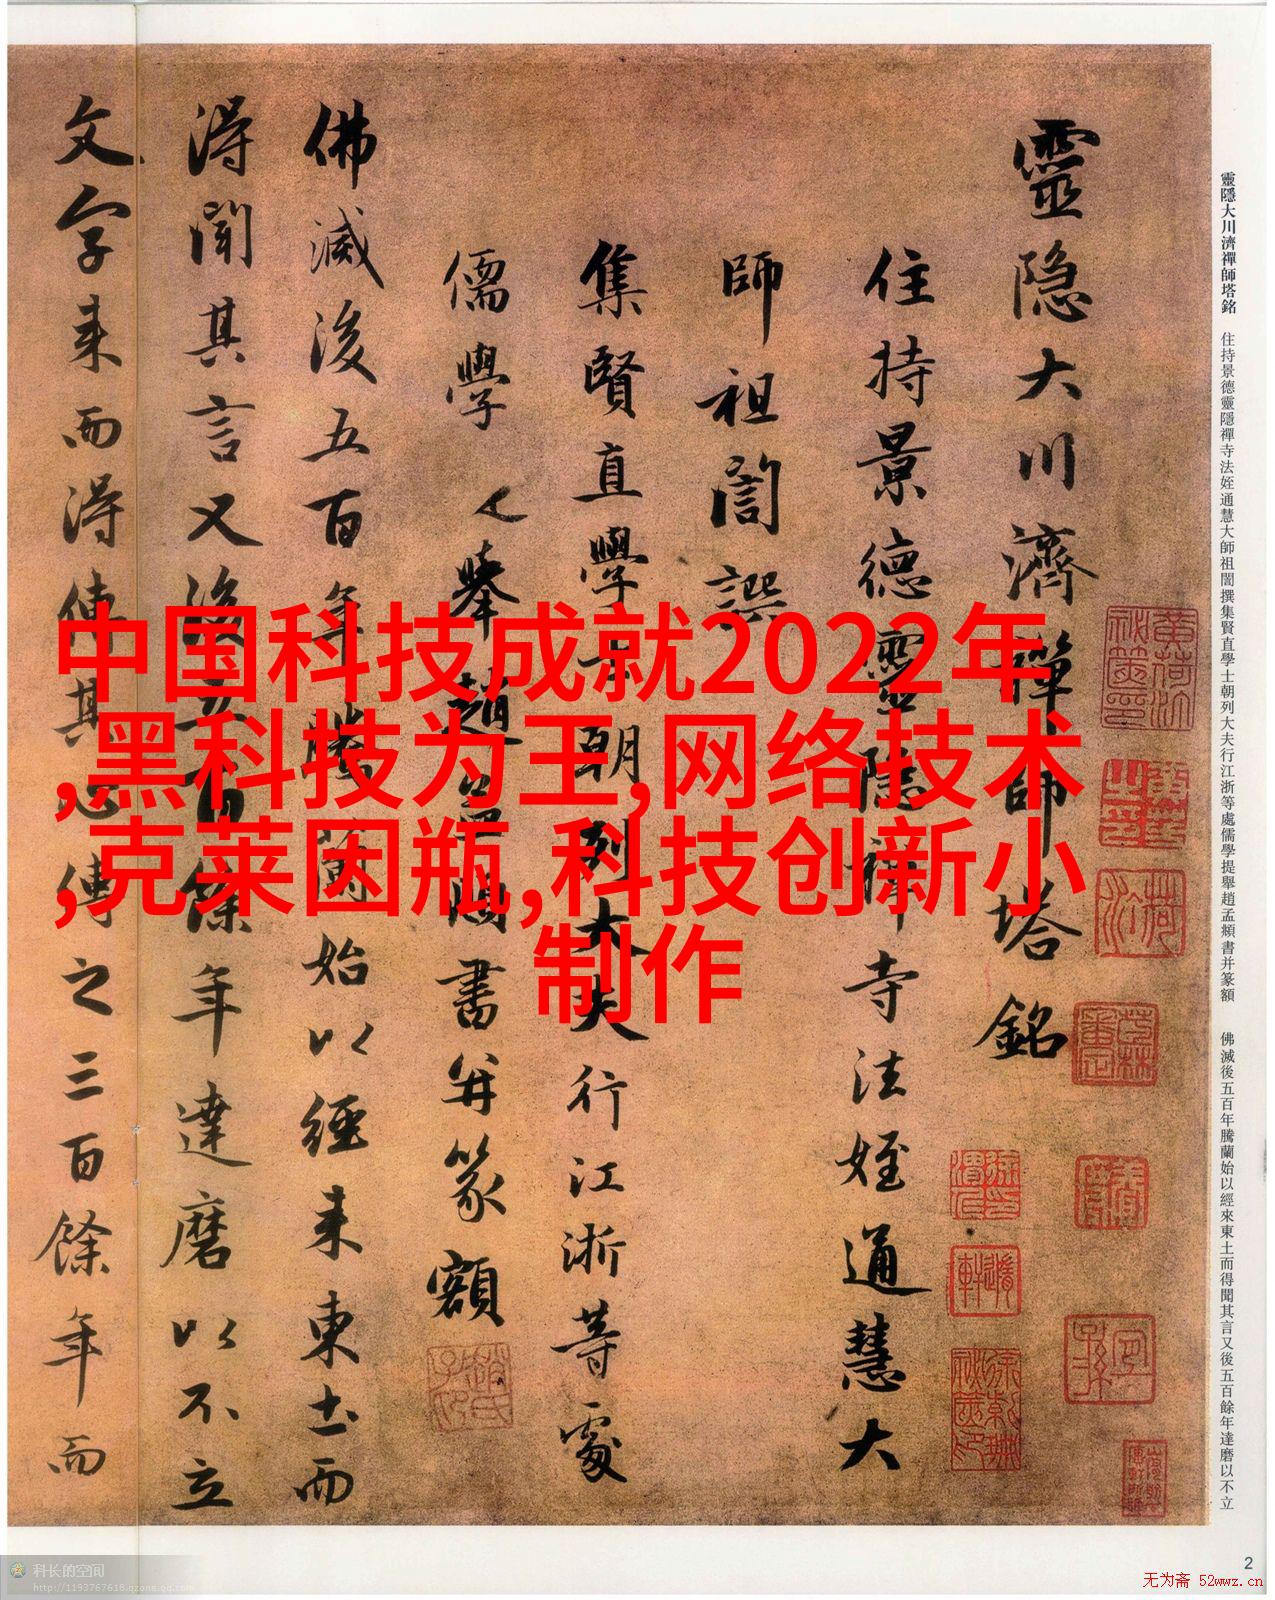 靈隐大川濟禅師塔銘
住持景德靈隐禅寺法姪通慧大
師祖誾譔
集賢直學士朝列大夫行江浙等處
儒學
舉趙孟頫書并篆額
佛滅後五百年騰蘭始以經来東土而
得聞其言又後五百餘年達磨以不立
文字来而得傳其心傳之三百餘年而
靈隱大川濟禪師塔銘 住持景德靈隱禪寺法姪通慧大師祖誾撰集賢直學士朝列大夫行江浙等處儒學提舉趙孟頫書并篆額 佛滅後五百年騰蘭始以經來東土而得聞其言又後五百餘年達磨以不立
中国科技成就2022年
,黑科技为王,网络技术
,克莱因瓶,科技创新小
制作
科长的空间
http://1193767618.qzone.qq.com
2
无为斋 52wwz.cn